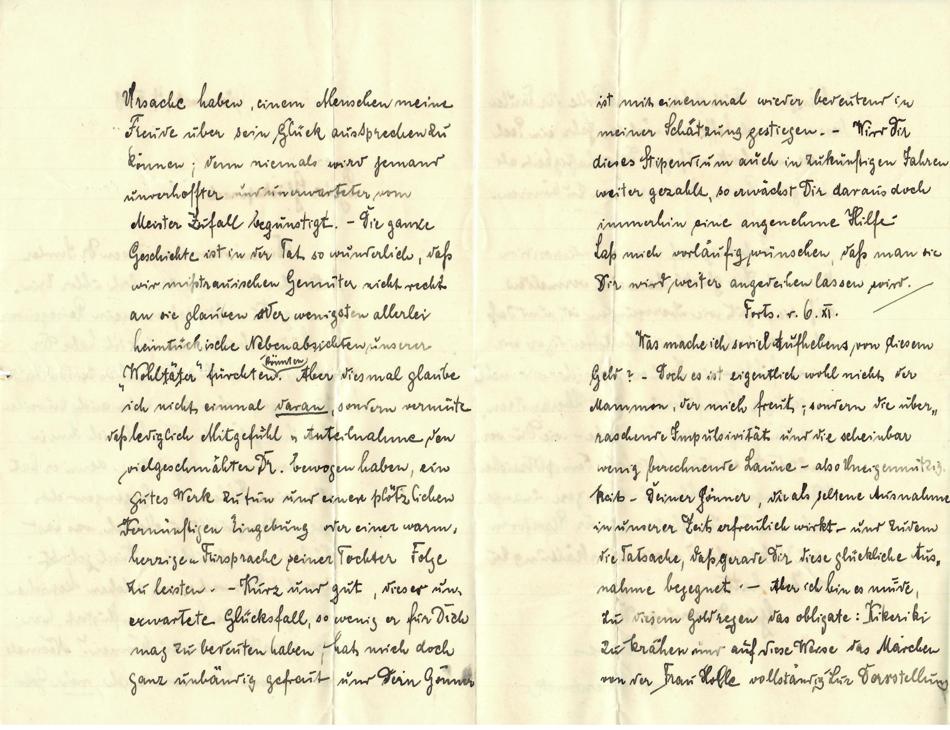 Ursache haben, einem Menschen meine
Freude über sein Glück aussprechen zu
können; denn niemals wird jemand
unverhoffter und unerwarteter vom
Meister Zufall begünstigt. - Die ganze
Geschichte ist in der Tat so wunderlich, daß
wir mißtrauischen Gemüter nicht recht
an sie glauben oder wenigsten allerlei
heimtückische Nebenabsichten unserer
"Wohltäter" fürchten könnten. Aber diesmal glaube
ich nicht einmal daran, sondern vermute
daß lediglich Mitgefühl u Anteilnahme den
vielgeschmähten Dr. bewogen haben, ein
gutes Werk zu tun und einer plötzlichen
Vernünftigen Eingebung oder einer warm,
herzigen Fürsprache seiner Tochter Folge
zu leisten. - Kurz und gut, dieser un,
erwartete Glücksfall, so wenig er für Dich
mag zu bedeuten haben, hat mich doch
ganz unbändig gefreut und Dein Gönner
ist mit einemmal wieder bedeutend in
meiner Schätzung gestiegen. - Wird Dir
dieses Stipendium auch in zukünftigen Jahren
weiter gezahlt, so erwächst Dir daraus doch
immerhin eine angenehme Hilfe
Laß mich vorläufig wünschen, daß man sie
Dir wird weiter angedeihen lassen wird.
Forts. v. 6. XI.
Was mache ich soviel Aufhebens von diesem
Geld? - Doch es ist eigentlich wohl nicht der
Mammon, der mich freut, sondern die über,,
raschende Impulsivität und die scheinbar
wenig berechnende Laune - also Uneigennützig-
keit - Deiner Gönner, die als seltene Ausnahme
in unserer Zeit erfreulich wirkt - und zudem
die Tatsache, daß gerade Dir diese glückliche Aus,,
nahme begegnet. - Aber ich bin es müde,
zu diesem Goldregen das obligate: Kikeriki
zu krähen und auf diese Weise das Märchen
von der Frau Holle vollständig zur Darstellung